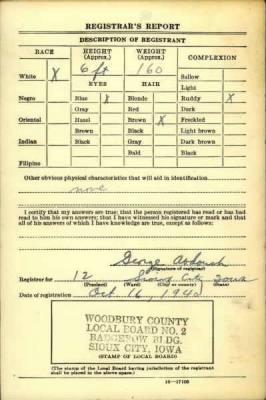 REGISTRAR'S REPORT
DESCRIPTION OF REGISTRANT
RACE HEIGHT (Approx.) WEIGHT (Approx.) COMPLEXION
White X 6 ft 160 Sallow
EYES HAIR Light
Negro Blue X Blonde Ruddy X
Gray Red Dark
Oriental Hazel Brown X Freckled
Brown Black Light brown
Indian Black Gray Dark brown
Bald Black
Filipino
Other obvious physical characteristics that will aid in identification
none
I certify that my answers are true; that the person registered has read or has had
read to him his own answers; that I have witnessed his signature or mark and that
all of his answers of which I have knowledge are true, except as follows:
George
(Signature of registrar)
Registrar for 12 Sioux City Iowa
(Precinct) (Ward) (City or county) (State)
Date of registration Oct 16, 1940
WOODBURY COUNTY
LOCAL BOARD NO. 2
BADGEROW BLDG.
SIOUX CITY, IOWA
(STAMP OF LOCAL BOARD)
(The stamp of the Local Board having jurisdiction of the registrant
shall be placed in the above space.)
16—17105